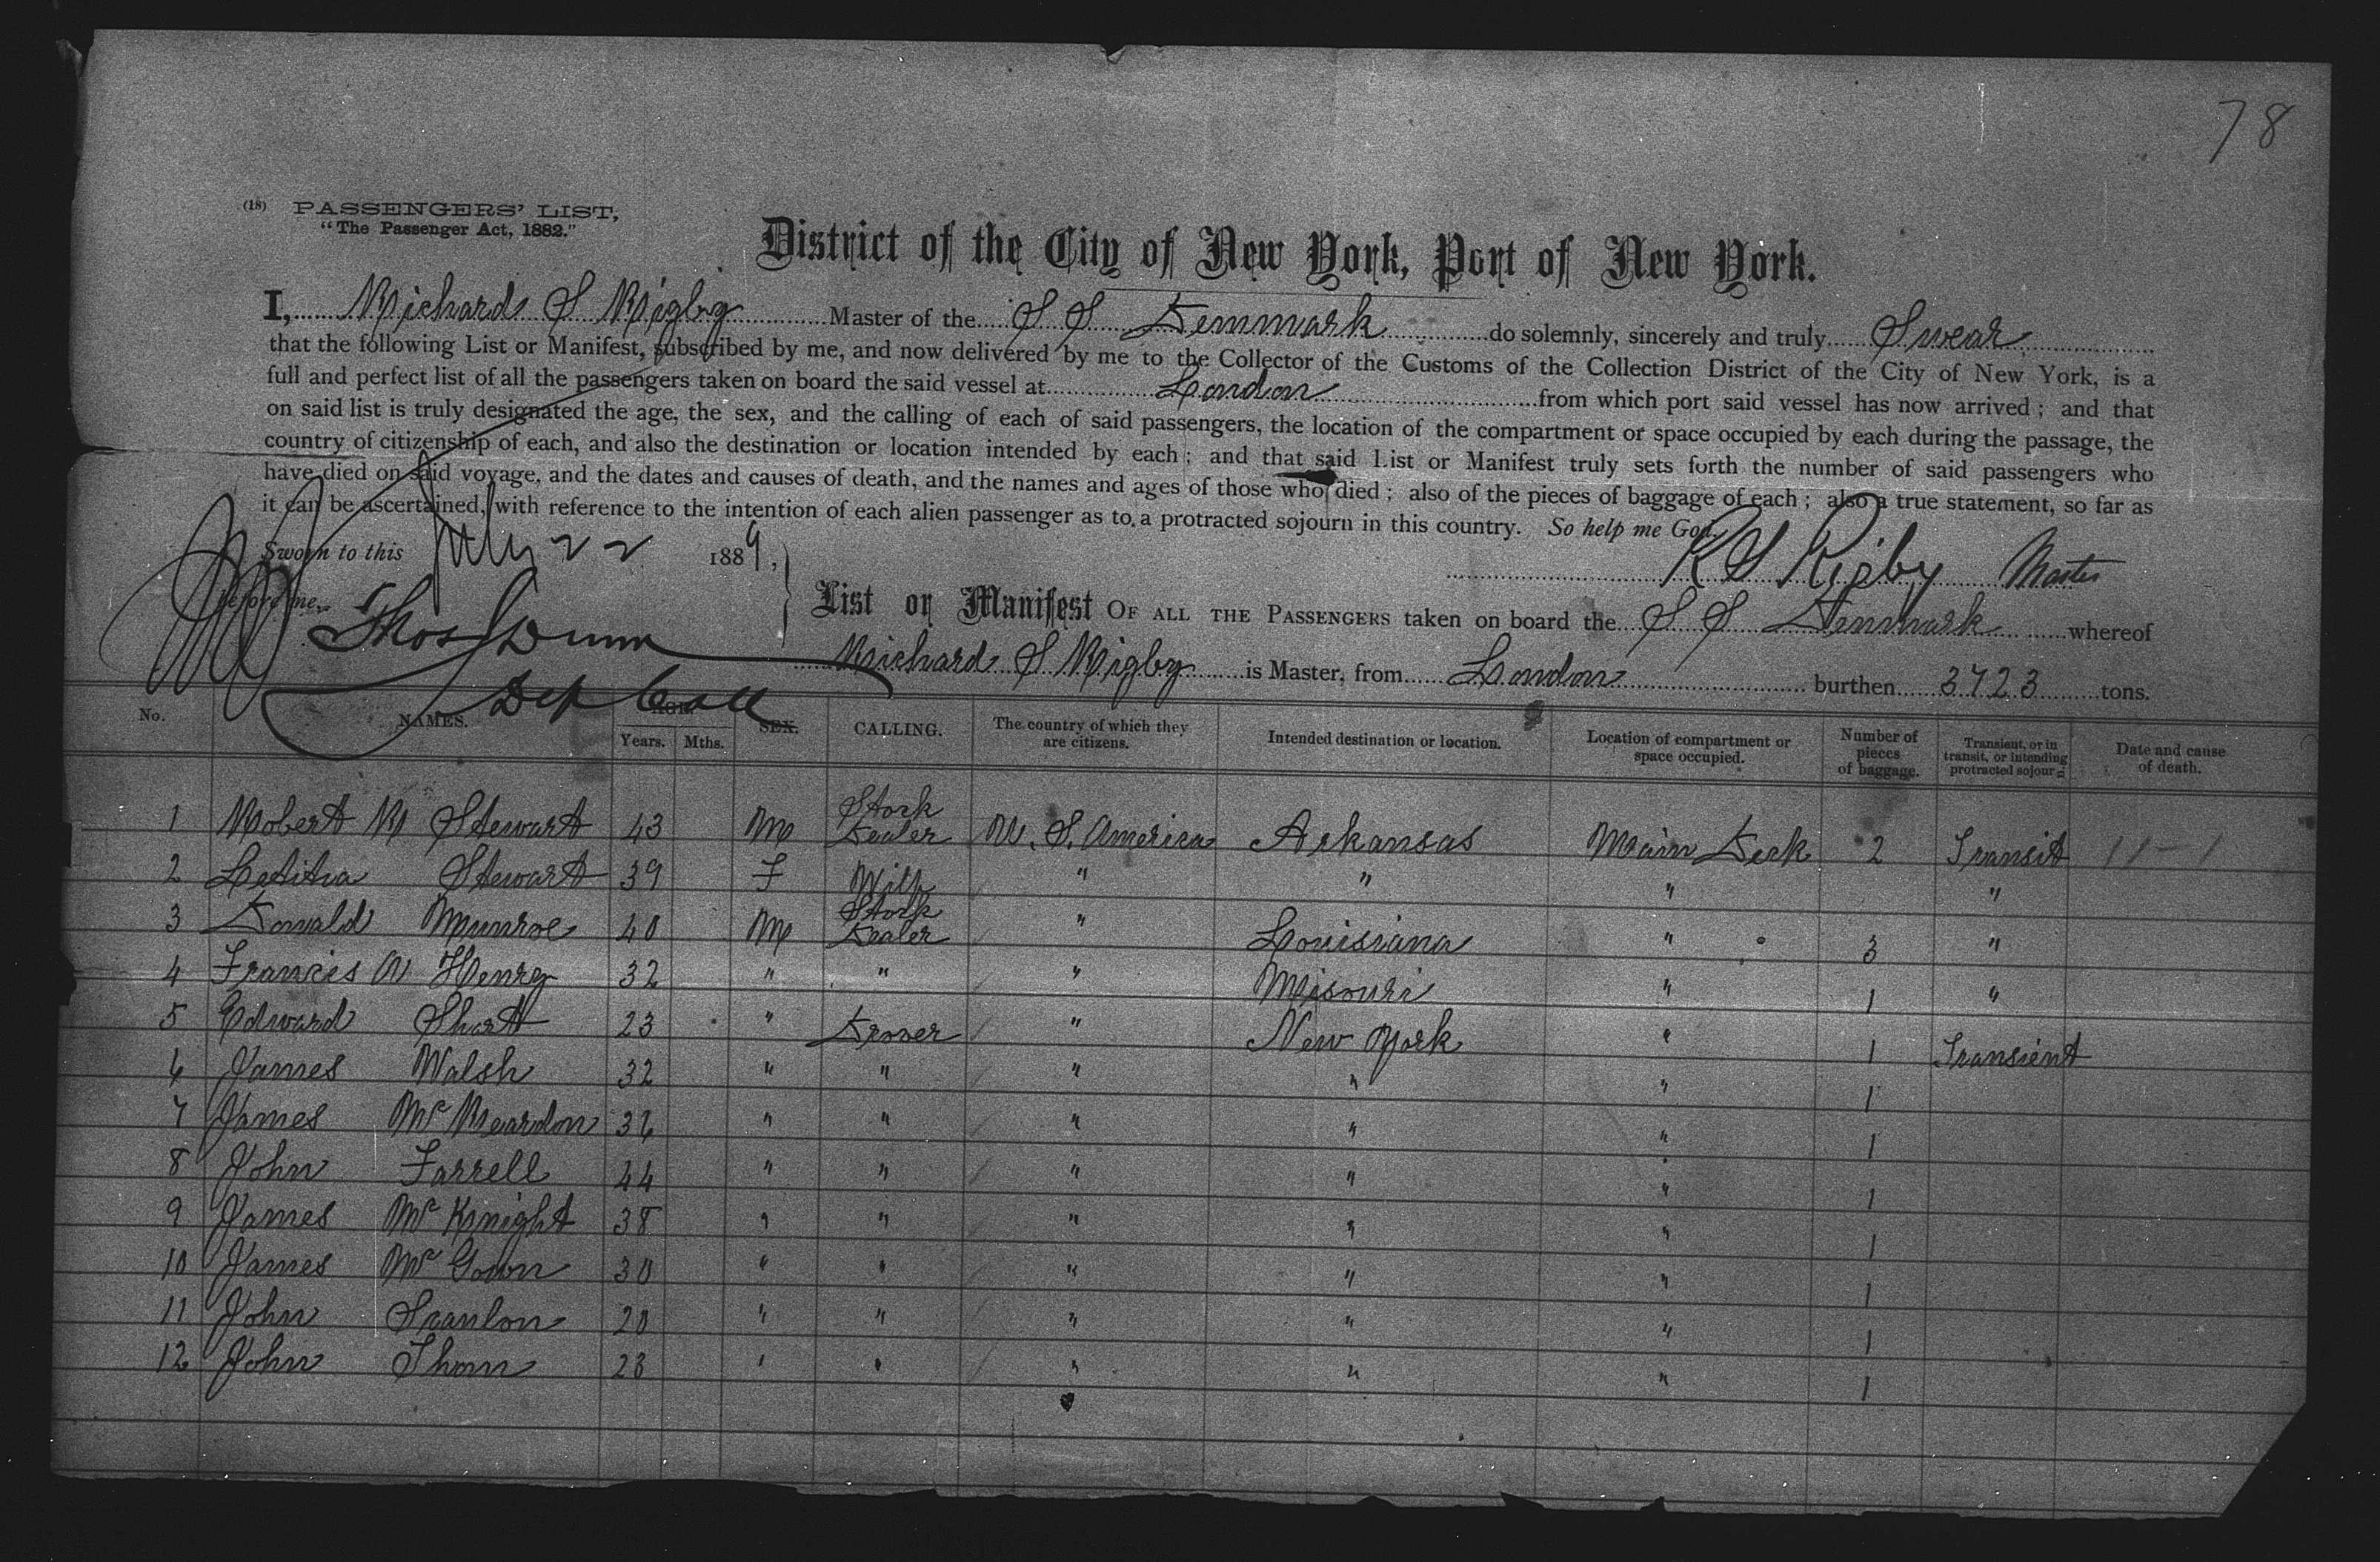 78
(18) PASSENGERS' LIST,
"The Passenger Act, 1882."
District of the City of New York, Port of New York.
I, Richard S Rigby Master of the S S Denmark do solemnly, sincerely and truly Swear
that the following List or Manifest, subscribed by me, and now delivered by me to the Collector of the Customs of the Collection District of the City of New York, is a
full and perfect list of all the passengers taken on board the said vessel at London from which port said vessel has now arrived; and that
on said list is truly designated the age, the sex, and the calling of each of said passengers, the location of the compartment or space occupied by each during the passage, the
country of citizenship of each, and also the destination or location intended by each; and that said List or Manifest truly sets forth the number of said passengers who
have died on said voyage, and the dates and causes of death, and the names and ages of those who died; also of the pieces of baggage of each; also a true statement, so far as
it can be ascertained, with reference to the intention of each alien passenger as to a protracted sojourn in this country. So help me God.
Sworn to this July 22 1889,
before me, Thos Dunn
Dep Coll
R S Rigby Master
List or Manifest OF ALL THE PASSENGERS taken on board the S S Denmark whereof
Richard S Rigby is Master, from London burthen 3723 tons.
No. NAMES. AGE. Years. Mths. SEX. CALLING. The country of which they are citizens. Intended destination or location. Location of compartment or space occupied. Number of pieces of baggage. Transient, or in transit, or intending protracted sojourn. Date and cause of death.
1 Robert M Stewart 43 M Stock Dealer U. S. America Arkansas Main Deck 2 Transit 11-1
2 Letitia Stewart 39 F Wife " " " "
3 Donald Munroe 40 M Stock Dealer " Louisiana " 3 "
4 Francis W Henry 32 " " " Misouri " 1 "
5 Edward Short 23 " Drover " New York " 1 Transient
6 James Walsh 32 " " " " " 1
7 James Mc Reardon 36 " " " " " 1
8 John Farrell 44 " " " " " 1
9 James Mc Knight 38 " " " " " 1
10 James Mc Gown 30 " " " " " 1
11 John Scanlon 20 " " " " " 1
12 John Thom 23 " " " " " 1